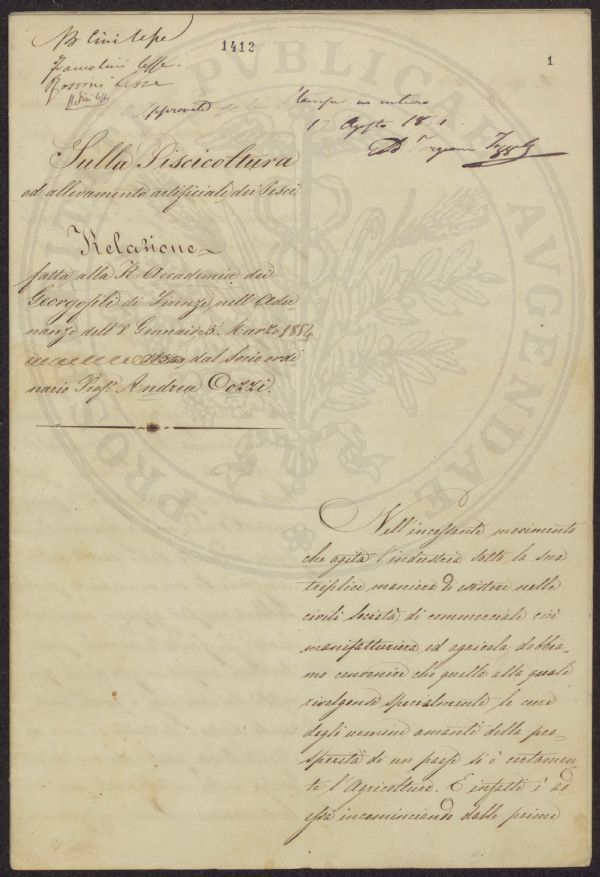 1412
1
Approvato
12 Agosto
Sulla Piscicoltura
ed allevamento artificiale dei Pesci
Relazione
fatta alla R. Accademia dei
Georgofili di Firenze nell'Adu
nanze dell'8 Gennaio, 5. Marzo 1854
dal Socio ordi
nario Prof.e Andrea Cozzi.
Nell'incessante movimento
che agita l'industria sotto la sua
triplice maniera di esistere nelle
civili società, di commerciale cioè
manifatturiera ed agricola dobbia-
mo convenire che quella alla quale
rivolgonsi specialmente le cure
degli uomini amanti della pro-
sperità di un paese si è certamen-
te l'Agricoltura. E infatti è ad
essa incominciando dalle prime
PROSPERITATI PUBLICAE AVGENDAE